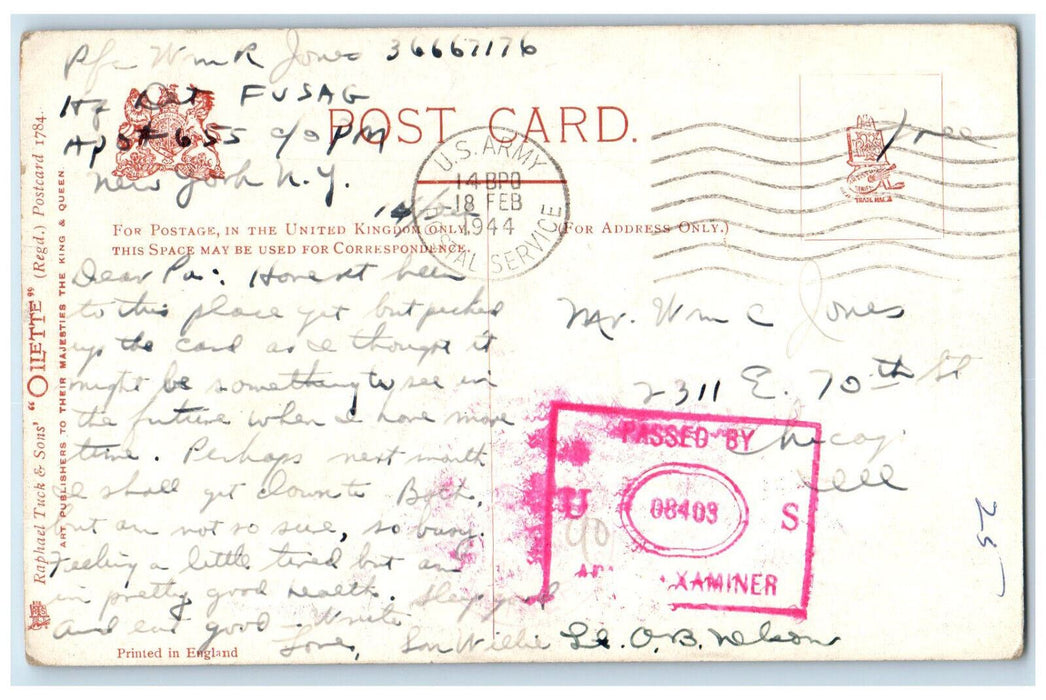 Pfc Wm R Jones 36667176
Hq Det FUSAG
APO# 655 c/o PM
New York N.Y.
14 Feb
POST CARD.
U.S. ARMY
14 BPO
18 FEB
1944
POSTAL SERVICE
Free
TRADE MARK
FOR POSTAGE, IN THE UNITED KINGDOM ONLY,
THIS SPACE MAY BE USED FOR CORRESPONDENCE.
(FOR ADDRESS ONLY.)
Dear Pa: Haven't been
to this place yet but picked
up the card as I thought it
might be something to see in
the future when I have more
time. Perhaps next month
I shall get down to
but am not so sure, so busy.
Feeling a little tired but am
in pretty good health. Sleep good
and eat good. Write
Love, Son Willie
Mr. Wm C Jones
2311 E. 70th St
Chicago
Ill
PASSED BY
U 08403 S
EXAMINER
Lt. O.B. Nelson
25
Raphael Tuck & Sons' "OILETTE" (Regd.) Postcard 1784.
ART PUBLISHERS TO THEIR MAJESTIES THE KING & QUEEN.
Printed in England